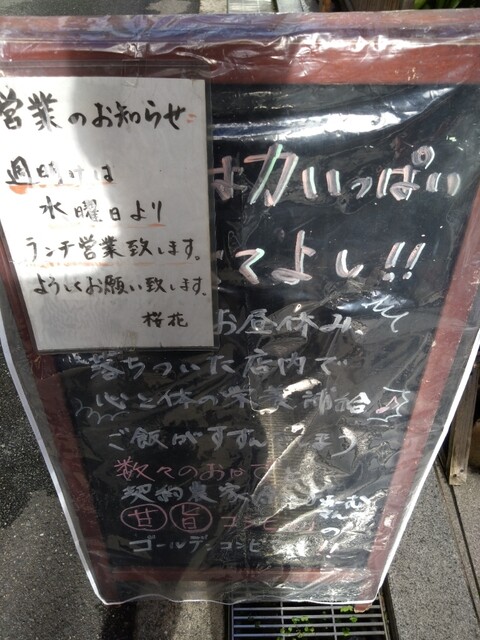 営業のお知らせ
週明けは
水曜日より
ランチ営業致します。
よろしくお願い致します。
桜花
力いっぱい
てよし!!
お昼休み
落ちついた店内で
心と体の栄養補給♪
ご飯がすすん
数々のおかず
契約農家
甘 旨 コシヒカリ
ゴールデンコンビ